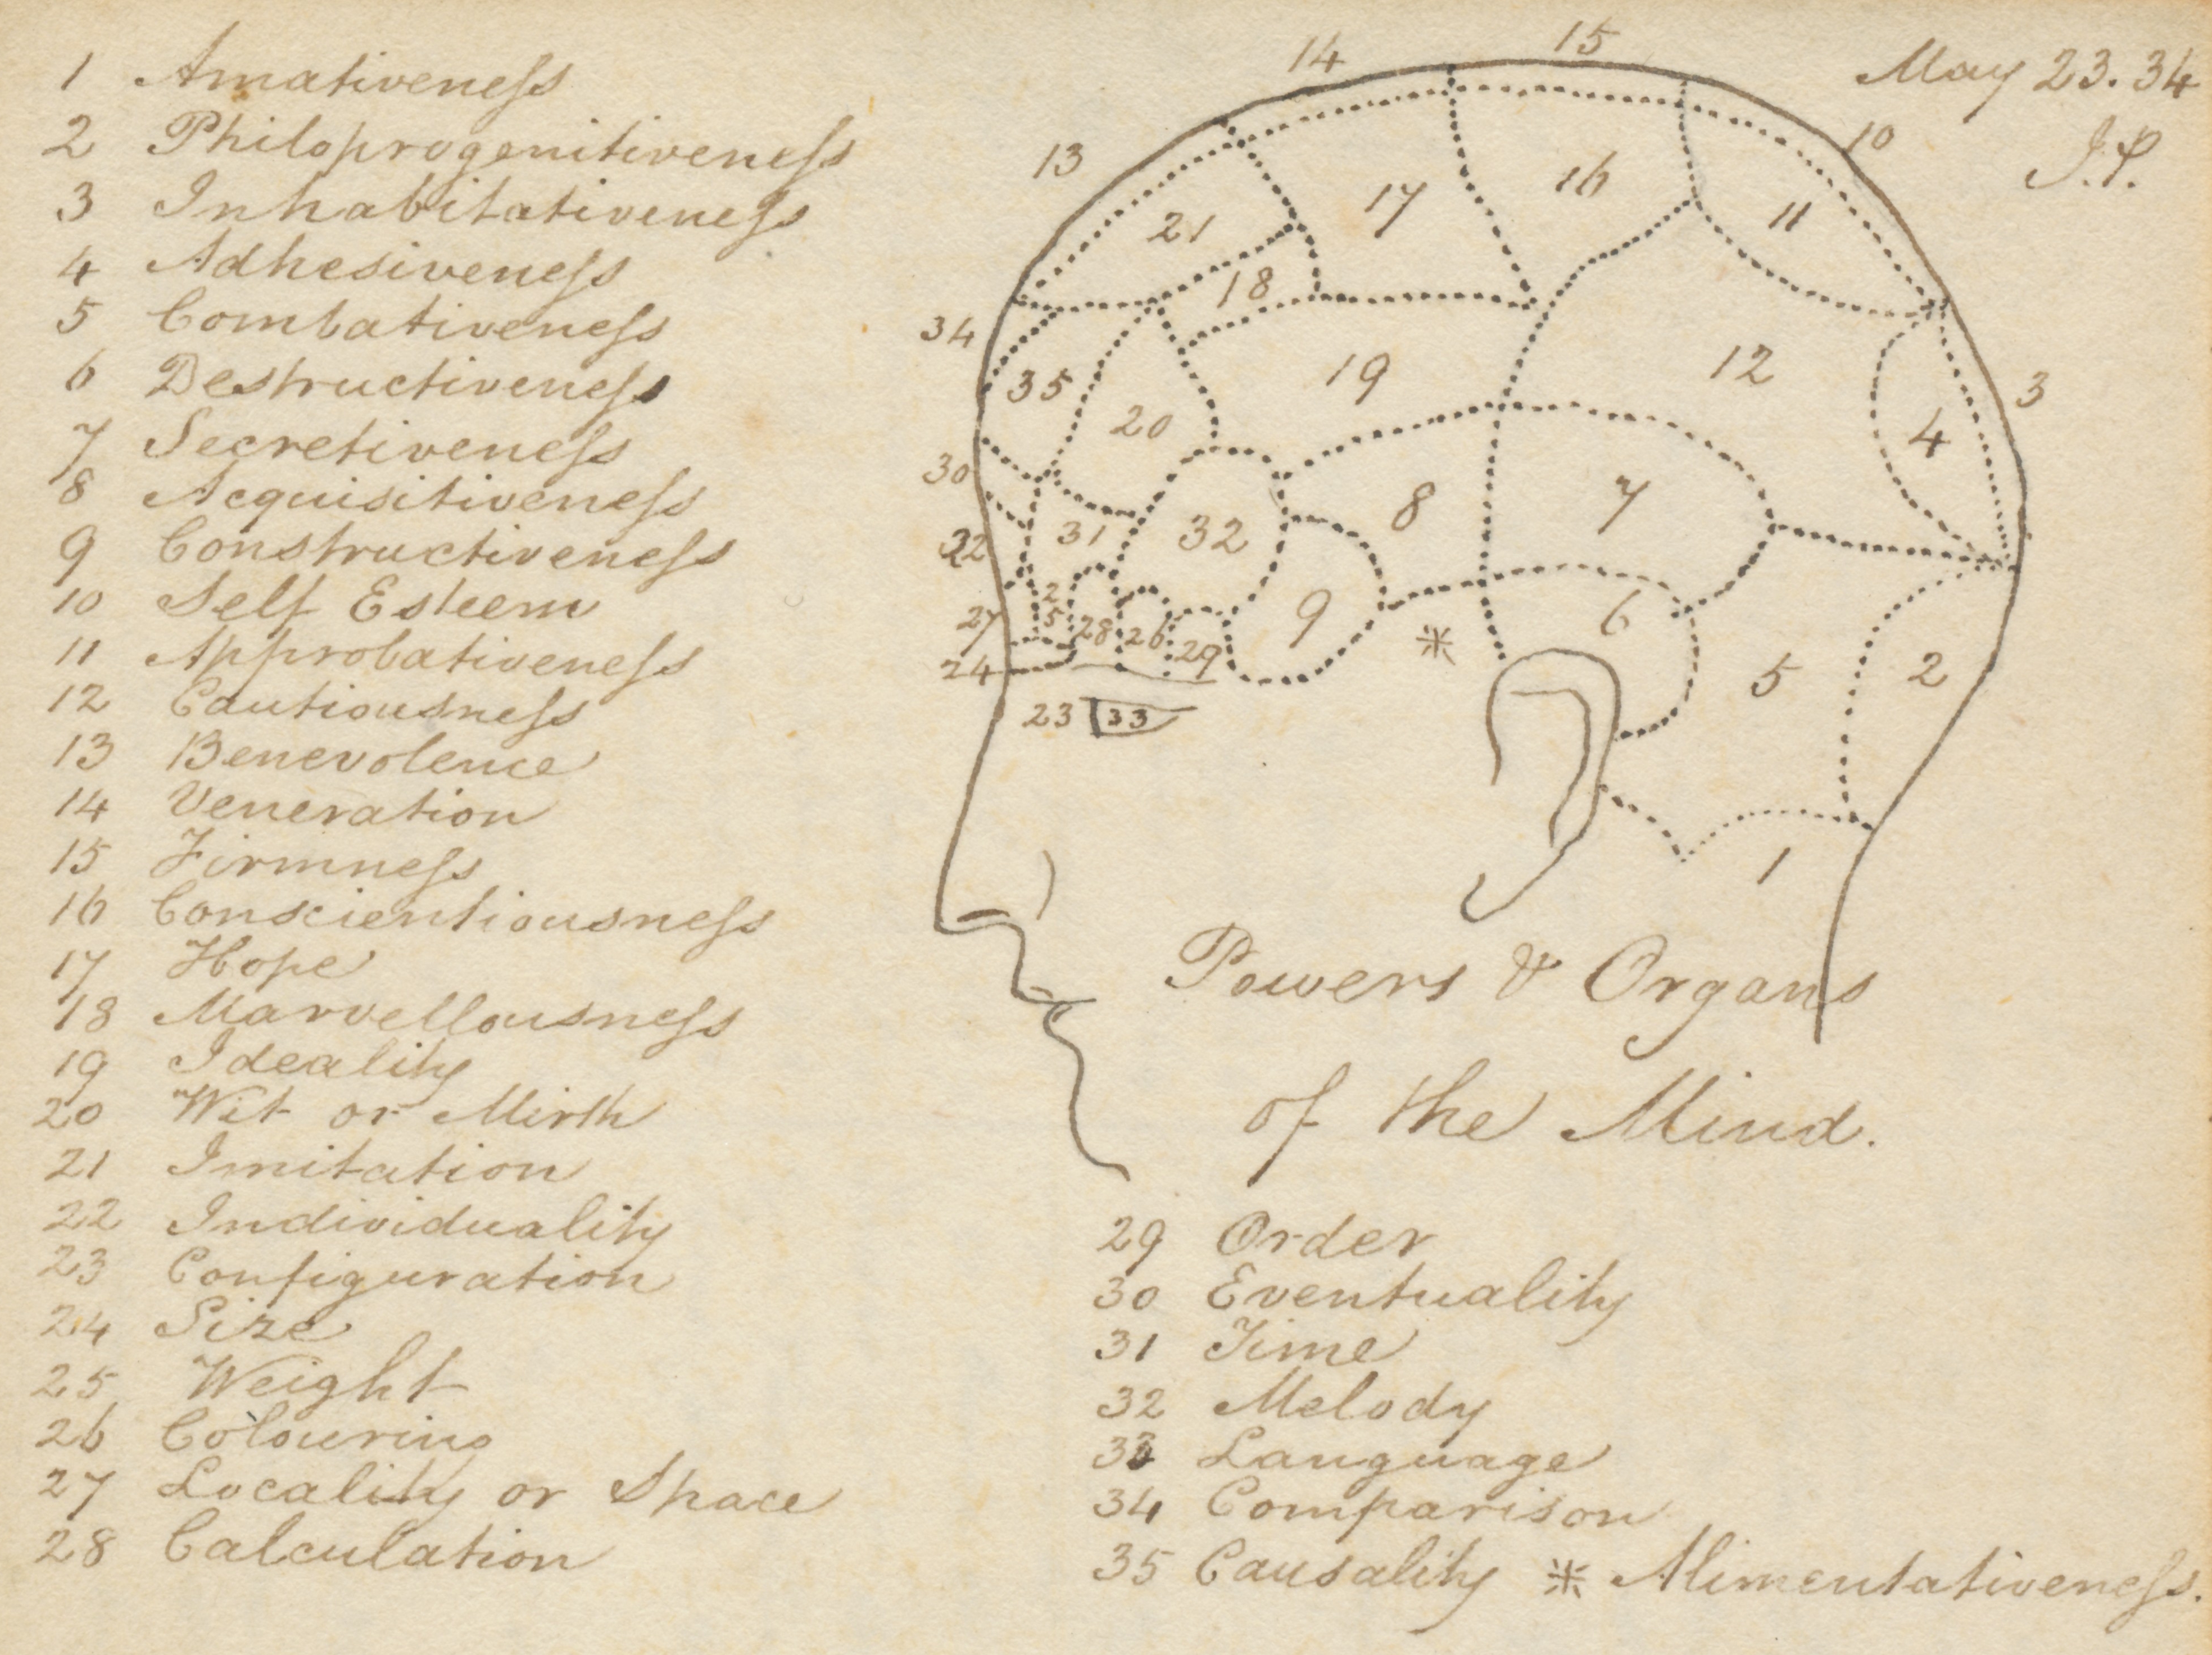 1 Amativeneſs
2 Philoprogenitiveneſs
3 Inhabitativeneſs
4 Adhesiveneſs
5 Combativeneſs
6 Destructiveneſs
7 Secretiveneſs
8 Acquisitiveneſs
9 Constructiveneſs
10 Self Esteem
11 Approbativeneſs
12 Cautiousneſs
13 Benevolence
14 Veneration
15 Firmneſs
16 Conscientiousneſs
17 Hope
18 Marvellousneſs
19 Ideality
20 Wit or Mirth
21 Imitation
22 Individuality
23 Configuration
24 Size
25 Weight
26 Colouring
27 Locality or Space
28 Calculation
May 23. 34
J.P.
14 15
13 10
21 17 16 11
18
34
35 19 12 3
20 4
30
31 32 8 7
32
27 25 28 26 29 9 ※ 6
24 5 2
23 33
1
Powers & Organs
of the Mind.
29 Order
30 Eventuality
31 Time
32 Melody
33 Language
34 Comparison
35 Causality ※ Alimentativeneſs.